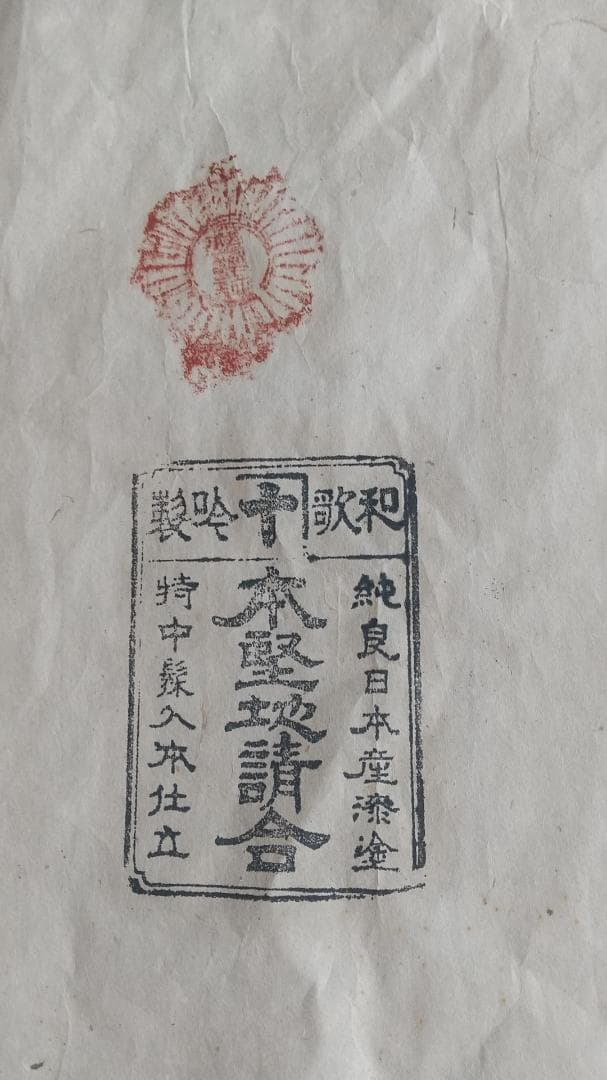 和歌 十 吟製
純良日本産漆塗
本堅地請合
特中髹入本仕立